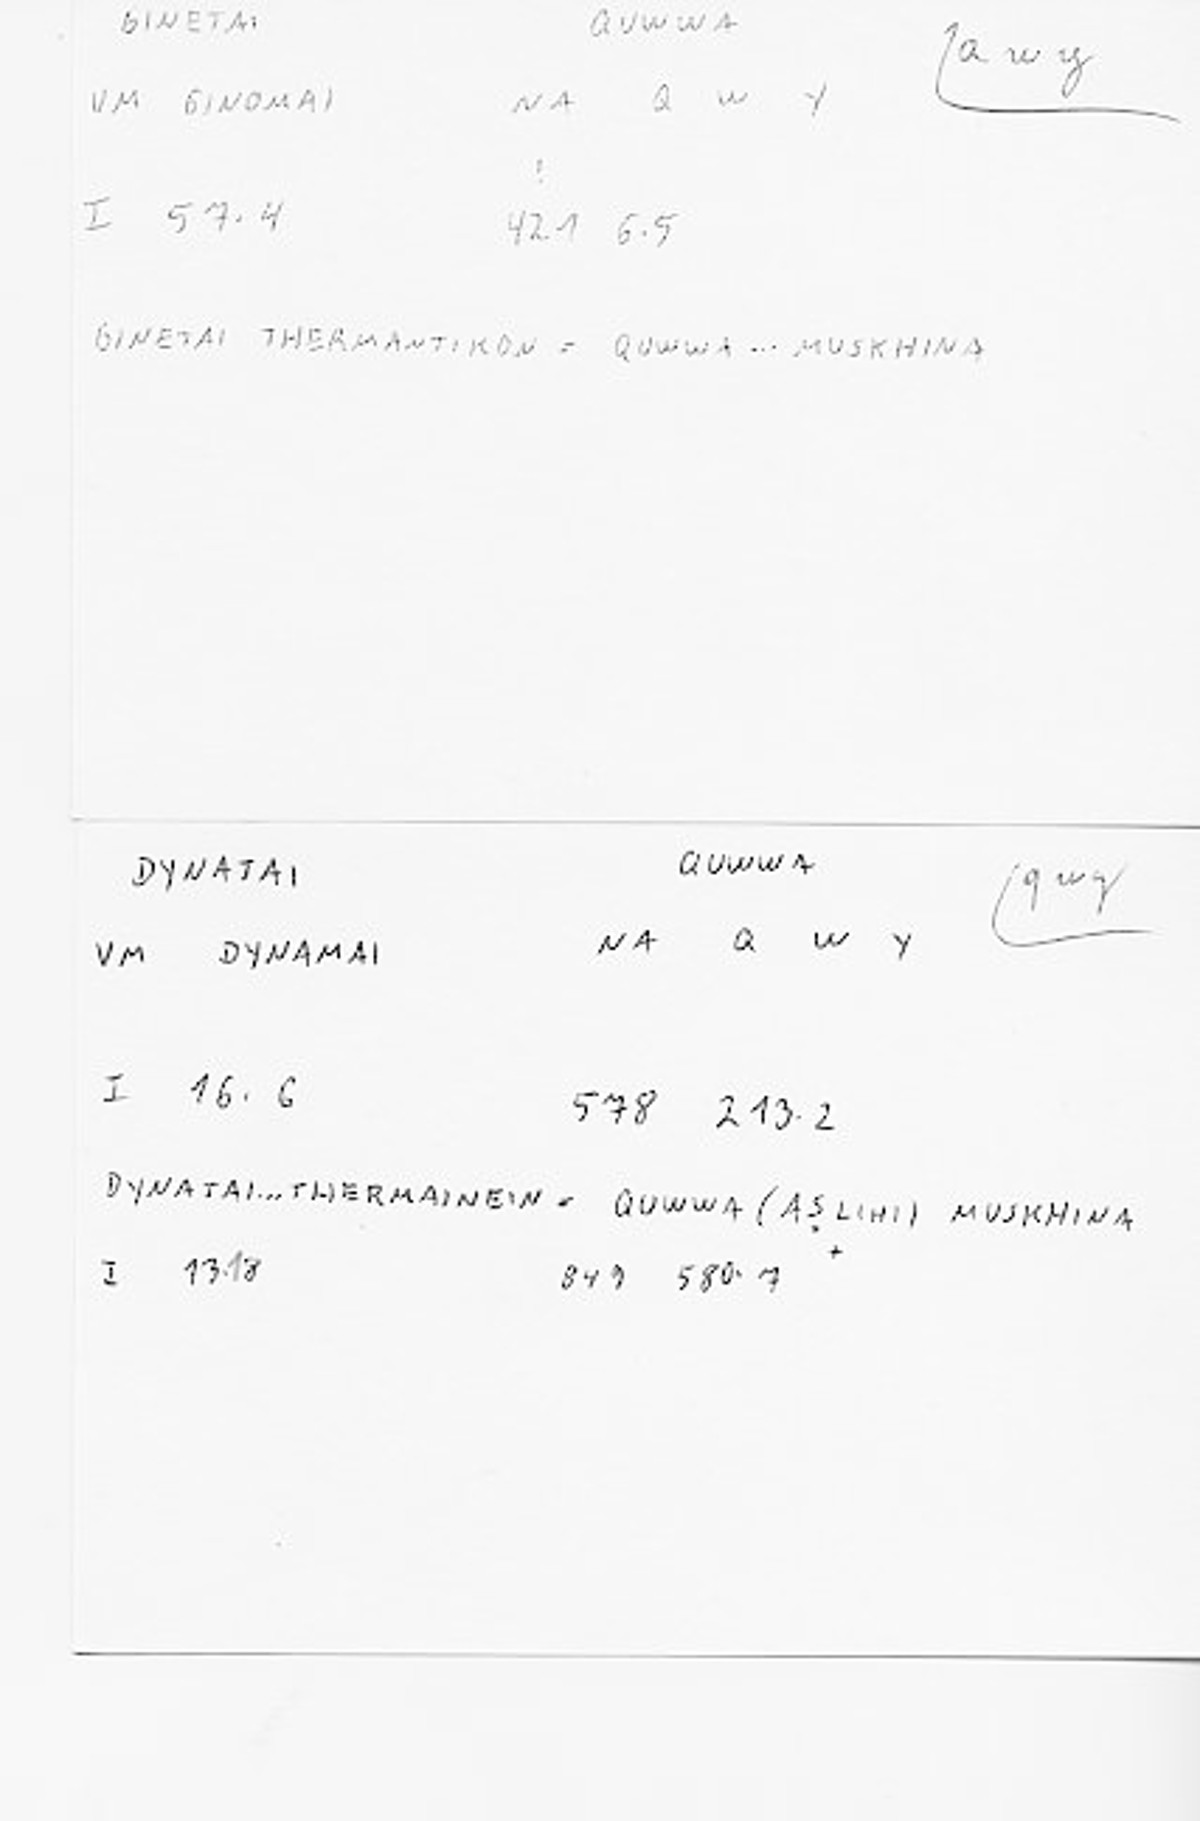 GINETAI QUWWA qwy
VM GINOMAI NA Q W Y
!
I 57.4 421 6.5
GINETAI THERMANTIKON = QUWWA ... MUSKHINA
DYNATAI QUWWA qwy
VM DYNAMAI NA Q W Y
I 16.6 578 213.2
DYNATAI...THERMAINEIN = QUWWA (AṢLIHI) MUSKHINA
+
I 13.18 849 580.7